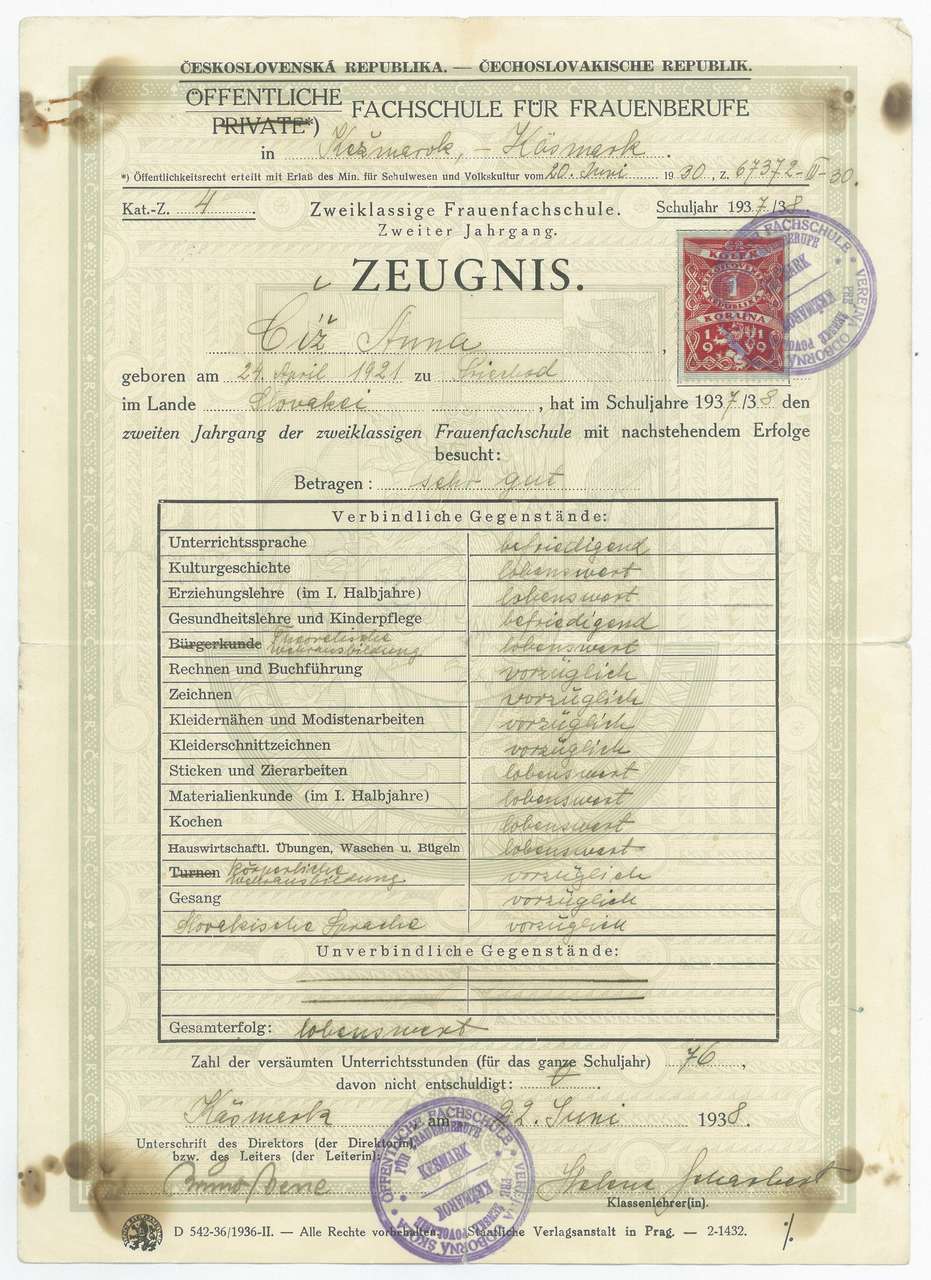 ČESKOSLOVENSKÁ REPUBLIKA. — ČECHOSLOVAKISCHE REPUBLIK.
ÖFFENTLICHE
PRIVATE*) FACHSCHULE FÜR FRAUENBERUFE
in Kežmarok, - Käsmark.
*) Öffentlichkeitsrecht erteilt mit Erlaß des Min. für Schulwesen und Volkskultur vom 20. Juni 1930, Z. 67372-II-30.
Kat.-Z. 4 Zweiklassige Frauenfachschule. Schuljahr 1937/38.
Zweiter Jahrgang.
ZEUGNIS.
KOLEK
1
KORUNA
1919
Číž Anna,
geboren am 24. April 1921 zu
im Lande Slovakei, hat im Schuljahre 1937/38 den
zweiten Jahrgang der zweiklassigen Frauenfachschule mit nachstehendem Erfolge
besucht:
Betragen: sehr gut
Verbindliche Gegenstände:
Unterrichtssprache befriedigend
Kulturgeschichte lobenswert
Erziehungslehre (im I. Halbjahre) lobenswert
Gesundheitslehre und Kinderpflege befriedigend
Bürgerkunde Theoretische Wehrausbildung lobenswert
Rechnen und Buchführung vorzüglich
Zeichnen vorzüglich
Kleidernähen und Modistenarbeiten vorzüglich
Kleiderschnittzeichnen vorzüglich
Sticken und Zierarbeiten lobenswert
Materialienkunde (im I. Halbjahre) lobenswert
Kochen lobenswert
Hauswirtschaftl. Übungen, Waschen u. Bügeln lobenswert
Turnen Körperliche Wehrausbildung vorzüglich
Gesang vorzüglich
Slovakische Sprache vorzüglich
Unverbindliche Gegenstände:
Gesamterfolg: lobenswert
Zahl der versäumten Unterrichtsstunden (für das ganze Schuljahr) 76,
davon nicht entschuldigt: 0
Käsmark, am 22. Juni 1938.
Unterschrift des Direktors (der Direktorin),
bzw. des Leiters (der Leiterin):
Bruno Helene Scharbert
Klassenlehrer(in).
ÖFFENTLICHE FACHSCHULE FÜR FRAUENBERUFE
KESMARK
KEŽMAROK
VEREJNÁ ODBORNÁ ŠKOLA PRE ŽENSKÉ POVOLANIA
D 542-36/1936-II. — Alle Rechte vorbehalten. — Staatliche Verlagsanstalt in Prag. — 2-1432.